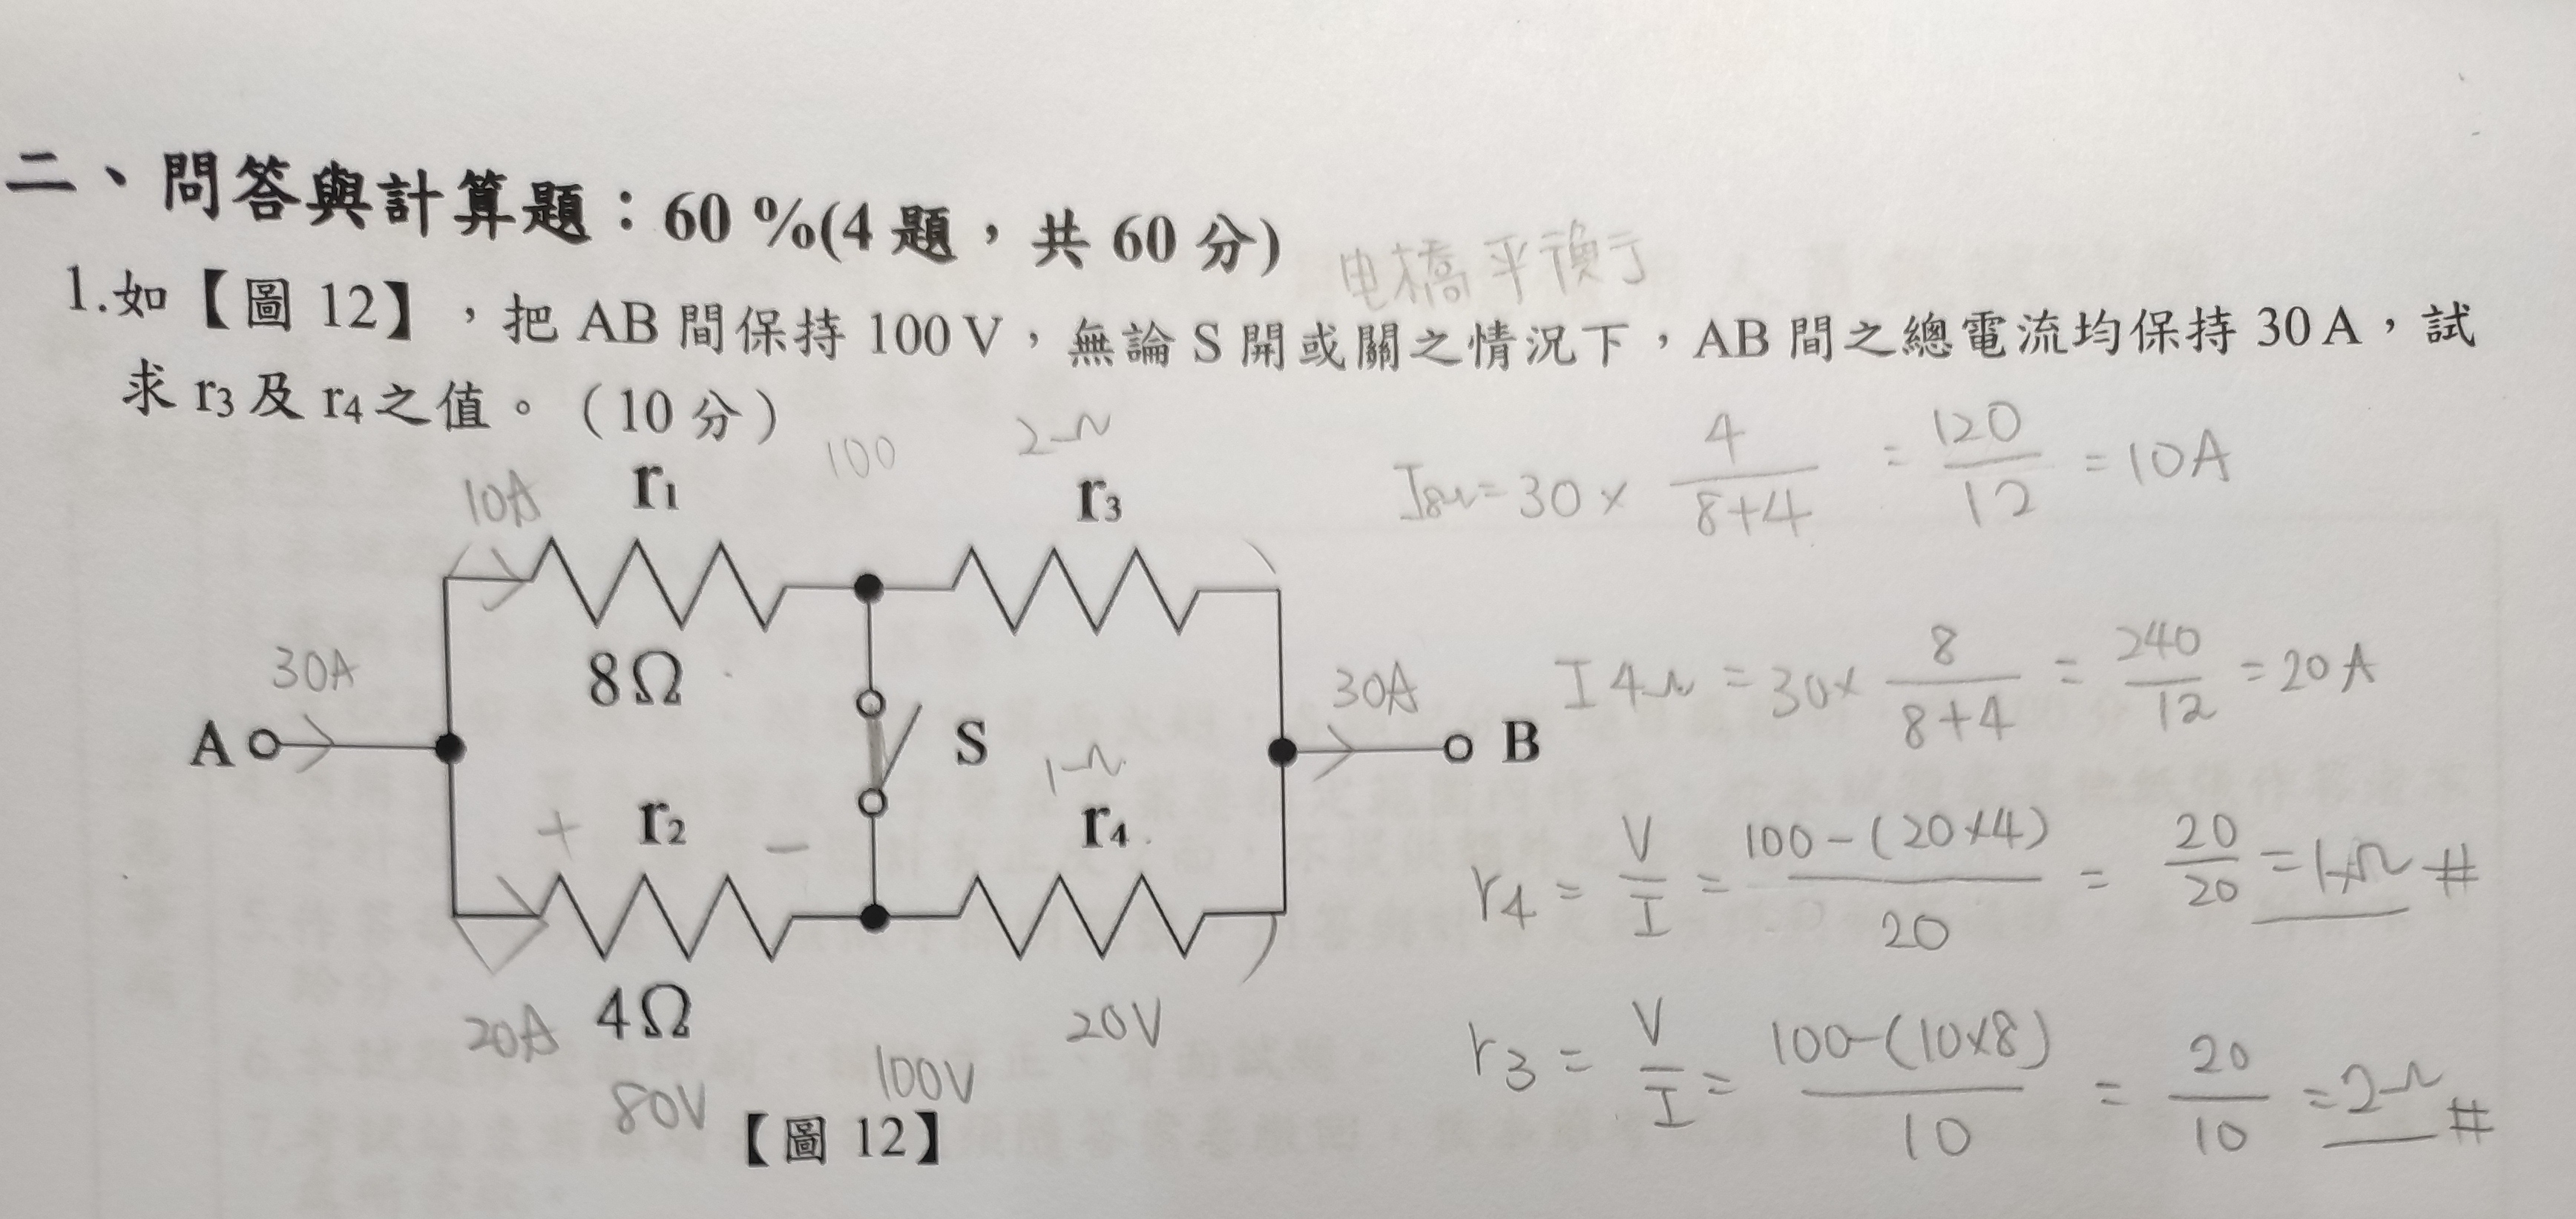 二、問答與計算題：60 %(4 題，共 60 分)
电橋平衡
1.如【圖 12】，把 AB 間保持 100 V，無論 S 開或關之情況下，AB 間之總電流均保持 30 A，試
求 r3 及 r4 之值。（10 分）
100
2Ω
10A
r1
r3
8Ω
30A
30A
A
S
B
1Ω
+
r2
−
r4
20A
4Ω
20V
80V
100V
【圖 12】
I8Ω = 30 × 4/(8+4) = 120/12 = 10A
I4Ω = 30 × 8/(8+4) = 240/12 = 20A
r4 = V/I = (100-(20×4))/20 = 20/20 = 1Ω #
r3 = V/I = (100-(10×8))/10 = 20/10 = 2Ω #